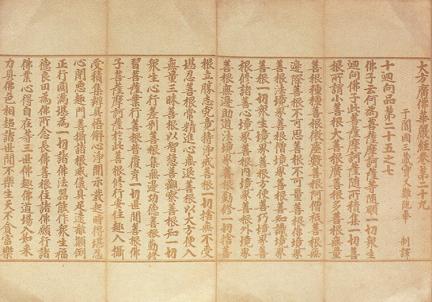 大方廣佛華嚴經卷第二十九
于闐國三藏實叉難陀奉 制譯
十迴向品第二十五之七
佛子云何為菩薩摩訶薩等隨順一切眾生
迴向佛子此菩薩摩訶薩隨所積集一切善
根所謂小善根大善根廣善根多善根無量
善根種種善根微塵數善根阿僧祇善根無
邊際善根不可思善根不可量善根佛境界
善根法境界善根僧境界善根善知識境界
善根一切眾生境界善根方便善巧境界善
根修諸善心境界善根內境界善根外境界
善根無邊助道法境界善根勤修一切捨善
根立勝志究竟持淨戒善根一切捨無不受
堪忍善根常精進心無退善根以大方便入
無量三昧善根以智慧善觀察善根知一切
眾生心行差別善根集無邊功德善根勤修
習菩薩業行善根普覆育一切世間善根佛
子菩薩摩訶薩於此善根修行安住趣入攝
受積集辦具悟解心淨開示發起時得堪忍
心閉惡趣門善攝諸根威儀具足遠離顛倒
正行圓滿堪為一切諸佛法器能作眾生福
德良田為佛所念長佛善根住諸佛願行諸
佛業心得自在等三世佛趣佛道場入如來
力具佛色相超諸世間不樂生天不貪富樂